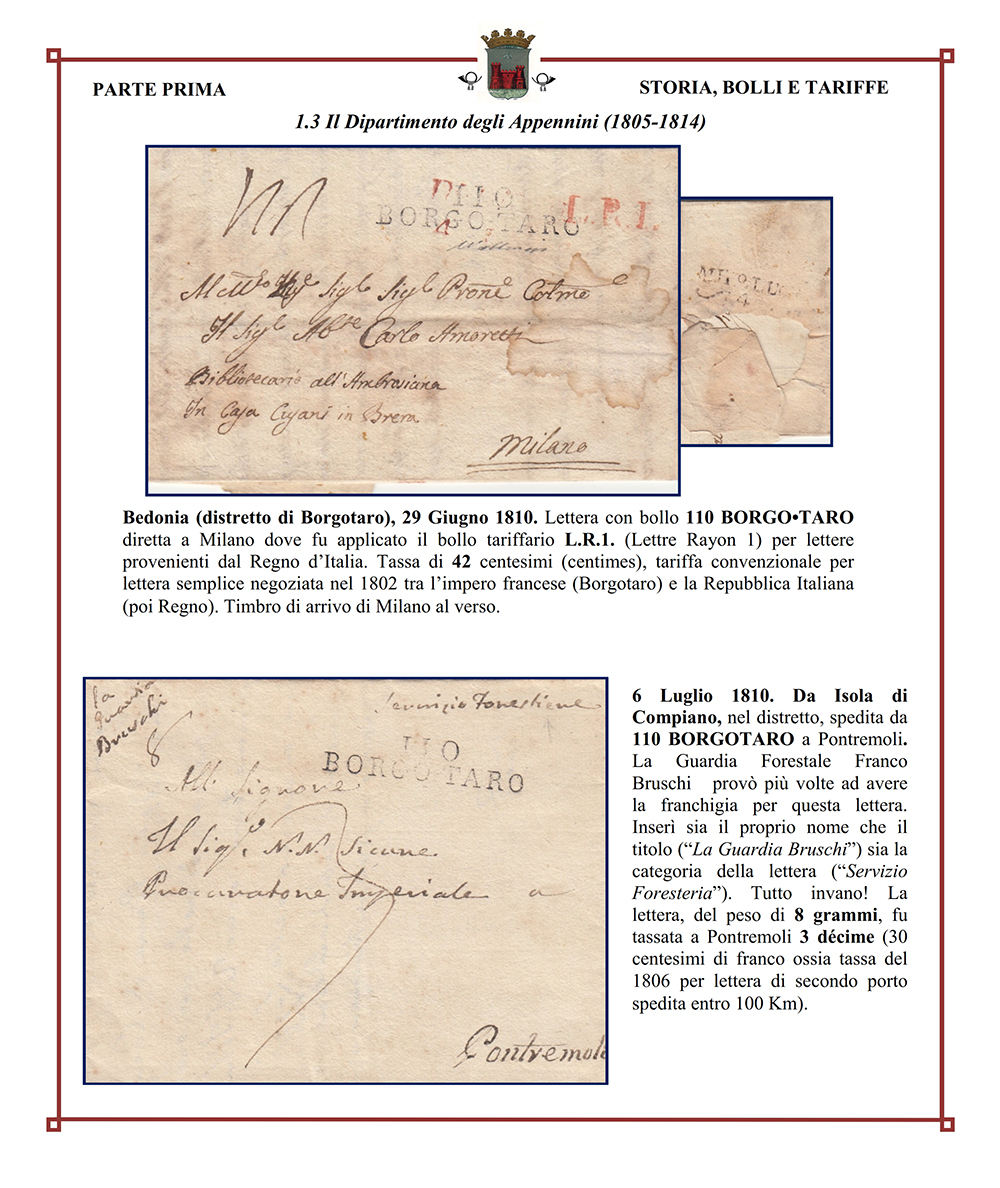 PARTE PRIMA
STORIA, BOLLI E TARIFFE
1.3 Il Dipartimento degli Appennini (1805-1814)
110
BORGO•TARO
L.R.I.
Il Sigr Abte Carlo Amoretti
Bibliotecario all'Ambrosiana
In Casa Cusani in Brera
Milano
Bedonia (distretto di Borgotaro), 29 Giugno 1810. Lettera con bollo 110 BORGO•TARO
diretta a Milano dove fu applicato il bollo tariffario L.R.1. (Lettre Rayon 1) per lettere
provenienti dal Regno d'Italia. Tassa di 42 centesimi (centimes), tariffa convenzionale per
lettera semplice negoziata nel 1802 tra l'impero francese (Borgotaro) e la Repubblica Italiana
(poi Regno). Timbro di arrivo di Milano al verso.
la
Guardia
Bruschi
8
110
BORGO•TARO
All Signore
Il Sigr. N.N.
Imperiale a
Pontremoli
6 Luglio 1810. Da Isola di
Compiano, nel distretto, spedita da
110 BORGOTARO a Pontremoli.
La Guardia Forestale Franco
Bruschi provò più volte ad avere
la franchigia per questa lettera.
Inserì sia il proprio nome che il
titolo (“La Guardia Bruschi”) sia la
categoria della lettera (“Servizio
Foresteria”). Tutto invano! La
lettera, del peso di 8 grammi, fu
tassata a Pontremoli 3 décime (30
centesimi di franco ossia tassa del
1806 per lettera di secondo porto
spedita entro 100 Km).